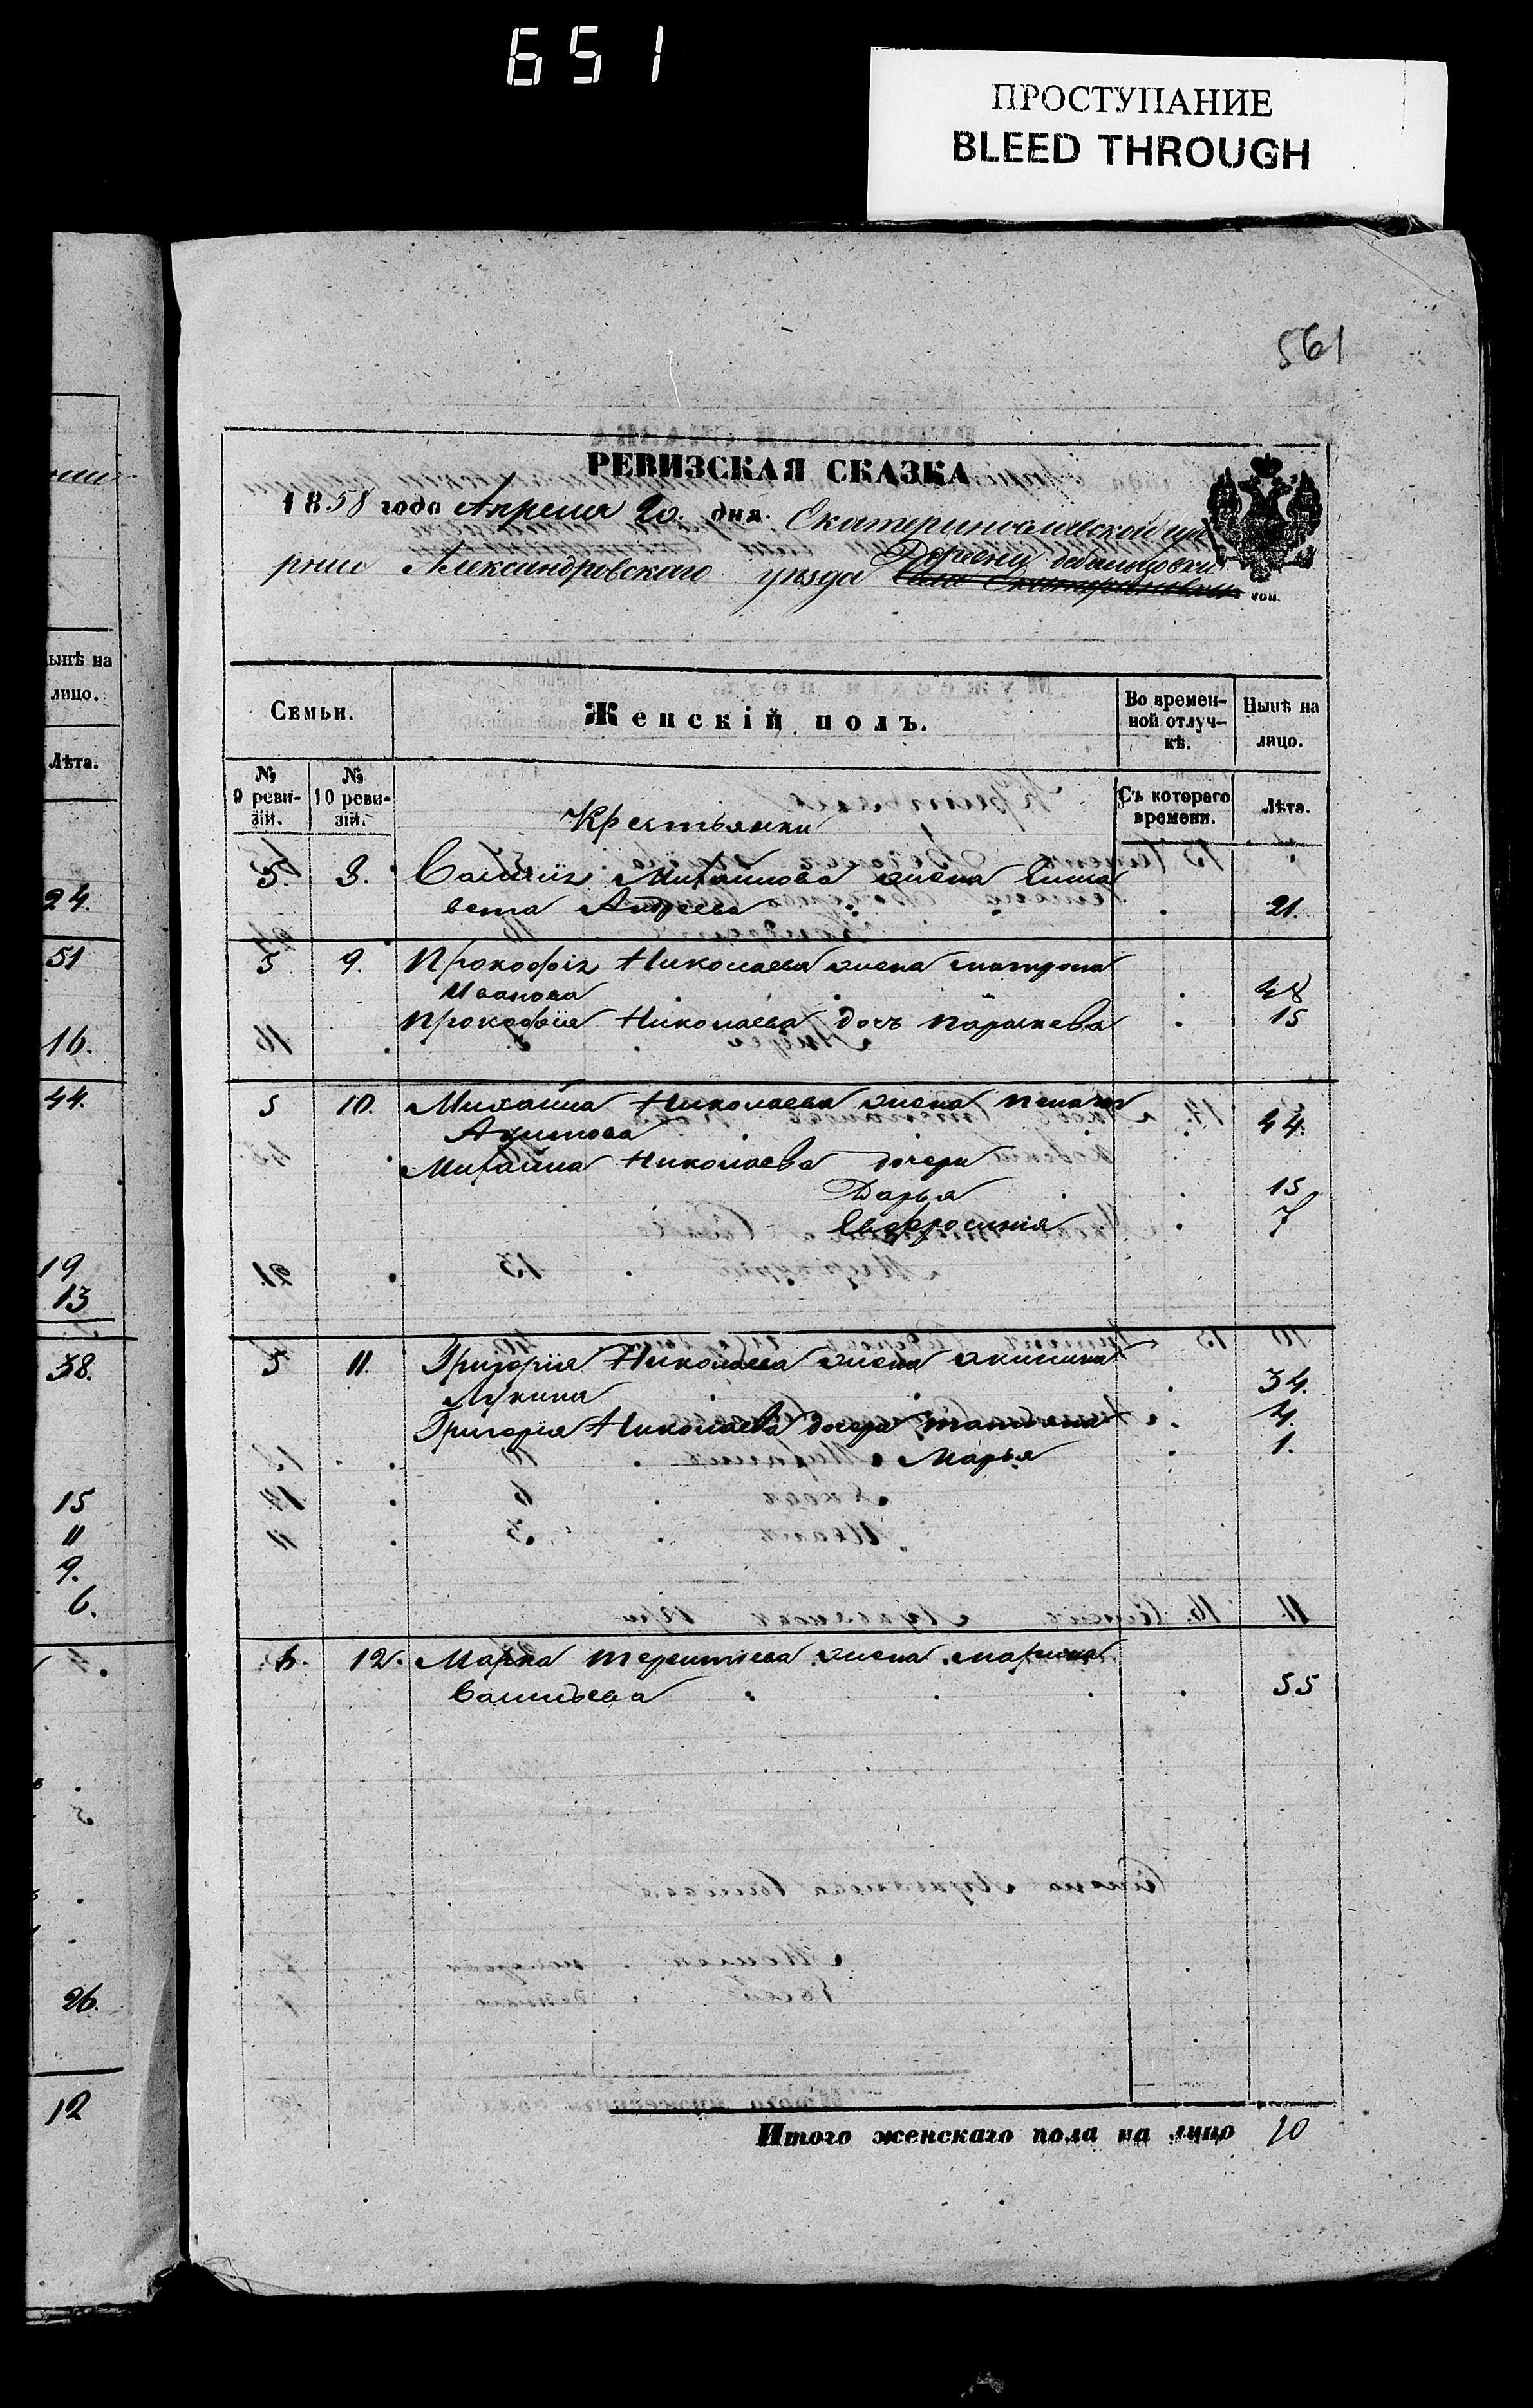 651
ПРОСТУПАНИЕ
BLEED THROUGH
561
РЕВИЗСКАЯ СКАЗКА
1858 года Апреля 20. дня. Екатеринославской губ
рніи Александровскаго уѣзда Деревни
Семьи.
Женскій полъ.
Во времен-
ной отлуч-
кѣ.
Нынѣ на
лицо.
№
9 реви-
зіи.
№
10 реви-
зіи.
Съ котораго
времени.
Лѣта.
Крестьянки
5. Василія Михайлова жена Елиза
вета Андреева 21.
5 9. Прокофія Николаева жена Матрона
Иванова 48
Прокофія Николаева дочь Параскева 15
5 10. Михайла Николаева жена Пелагея
Акимова 44.
Михайла Николаева дочери
Дарья 15
Евфросинія 7
5 11. Григорія Николаева жена Акилина
Лукина 34.
Григорія Николаева дочери Татьяна 4.
Марья 1.
6. 12. Марка Терентіева жена Марина
Васильева 55
Итого женскаго пола на лицо 10
ынѣ на
лицо.
Лѣта.
24.
51
16.
44.
19
13
38.
15
11
9.
6.
26.
12